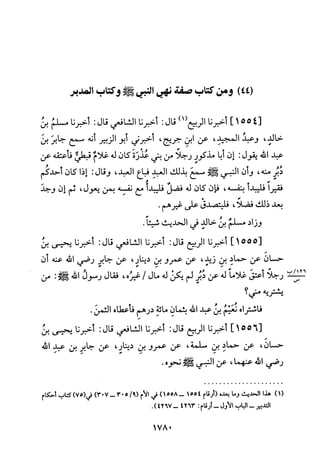 (٤٤) ومن كتاب صفة نهي النبي ﷺ وكتاب المدبر
[١٥٥٤] أخبرنا الربيع(١) قال: أخبرنا الشافعي قال: أخبرنا مسلمُ بنُ
خالدٍ، وعبدُ المجيدِ، عن ابنِ جريجٍ، أخبرني أبو الزبيرِ أنه سمعَ جابرَ بنَ
عبدِ اللهِ يقول: إن أبا مذكورٍ رجلاً من بني عُذْرَةَ كان له غلامٌ قبطيٌّ فأعتقه عن
دُبُرٍ منه، وأن النبيَّ ﷺ سمعَ بذلك العبدِ فباعَ العبدَ، وقال: إذا كان أحدُكم
فقيراً فليبدأ بنفسه، فإن كان له فضلٌ فليبدأ مع نفسه بمن يعول، ثم إن وجدَ
بعد ذلك فضلاً، فليتصدقْ على غيرِهم.
وزاد مسلمُ بنُ خالدٍ في الحديث شيئاً.
[١٥٥٥] أخبرنا الربيع قال: أخبرنا الشافعي قال: أخبرنا يحيى بنُ
حسانَ عن حمادِ بنِ زيدٍ، عن عمرِو بنِ دينارٍ، عن جابرٍ رضي الله عنه أن
رجلاً أعتقَ غلاماً له عن دُبُرٍ لم يكنْ له مال / غيرُه، فقال رسولُ الله ﷺ: من
يشتريه مني؟
فاشتراه نُعَيْمُ بنُ عبدِ اللهِ بثمانِ مائةِ درهمٍ فأعطاه الثمنَ.
[١٥٥٦] أخبرنا الربيع قال: أخبرنا الشافعي قال: أخبرنا يحيى بنُ
حسانَ، عن حمادِ بنِ سلمةَ، عن عمرِو بنِ دينارٍ، عن جابرِ بنِ عبدِ اللهِ
رضي الله عنهما، عن النبيِّ ﷺ نحوه.
(١) هذا الحديث وما بعده (أرقام ١٥٥٤ – ١٥٥٨) في الأم (٩/ ٣٠٥ – ٣٠٧) في (٧٥) كتاب أحكام
التدبير – الباب الأول – أرقام: ٤٢٦٣ – ٤٢٦٧).
١٧٨٠